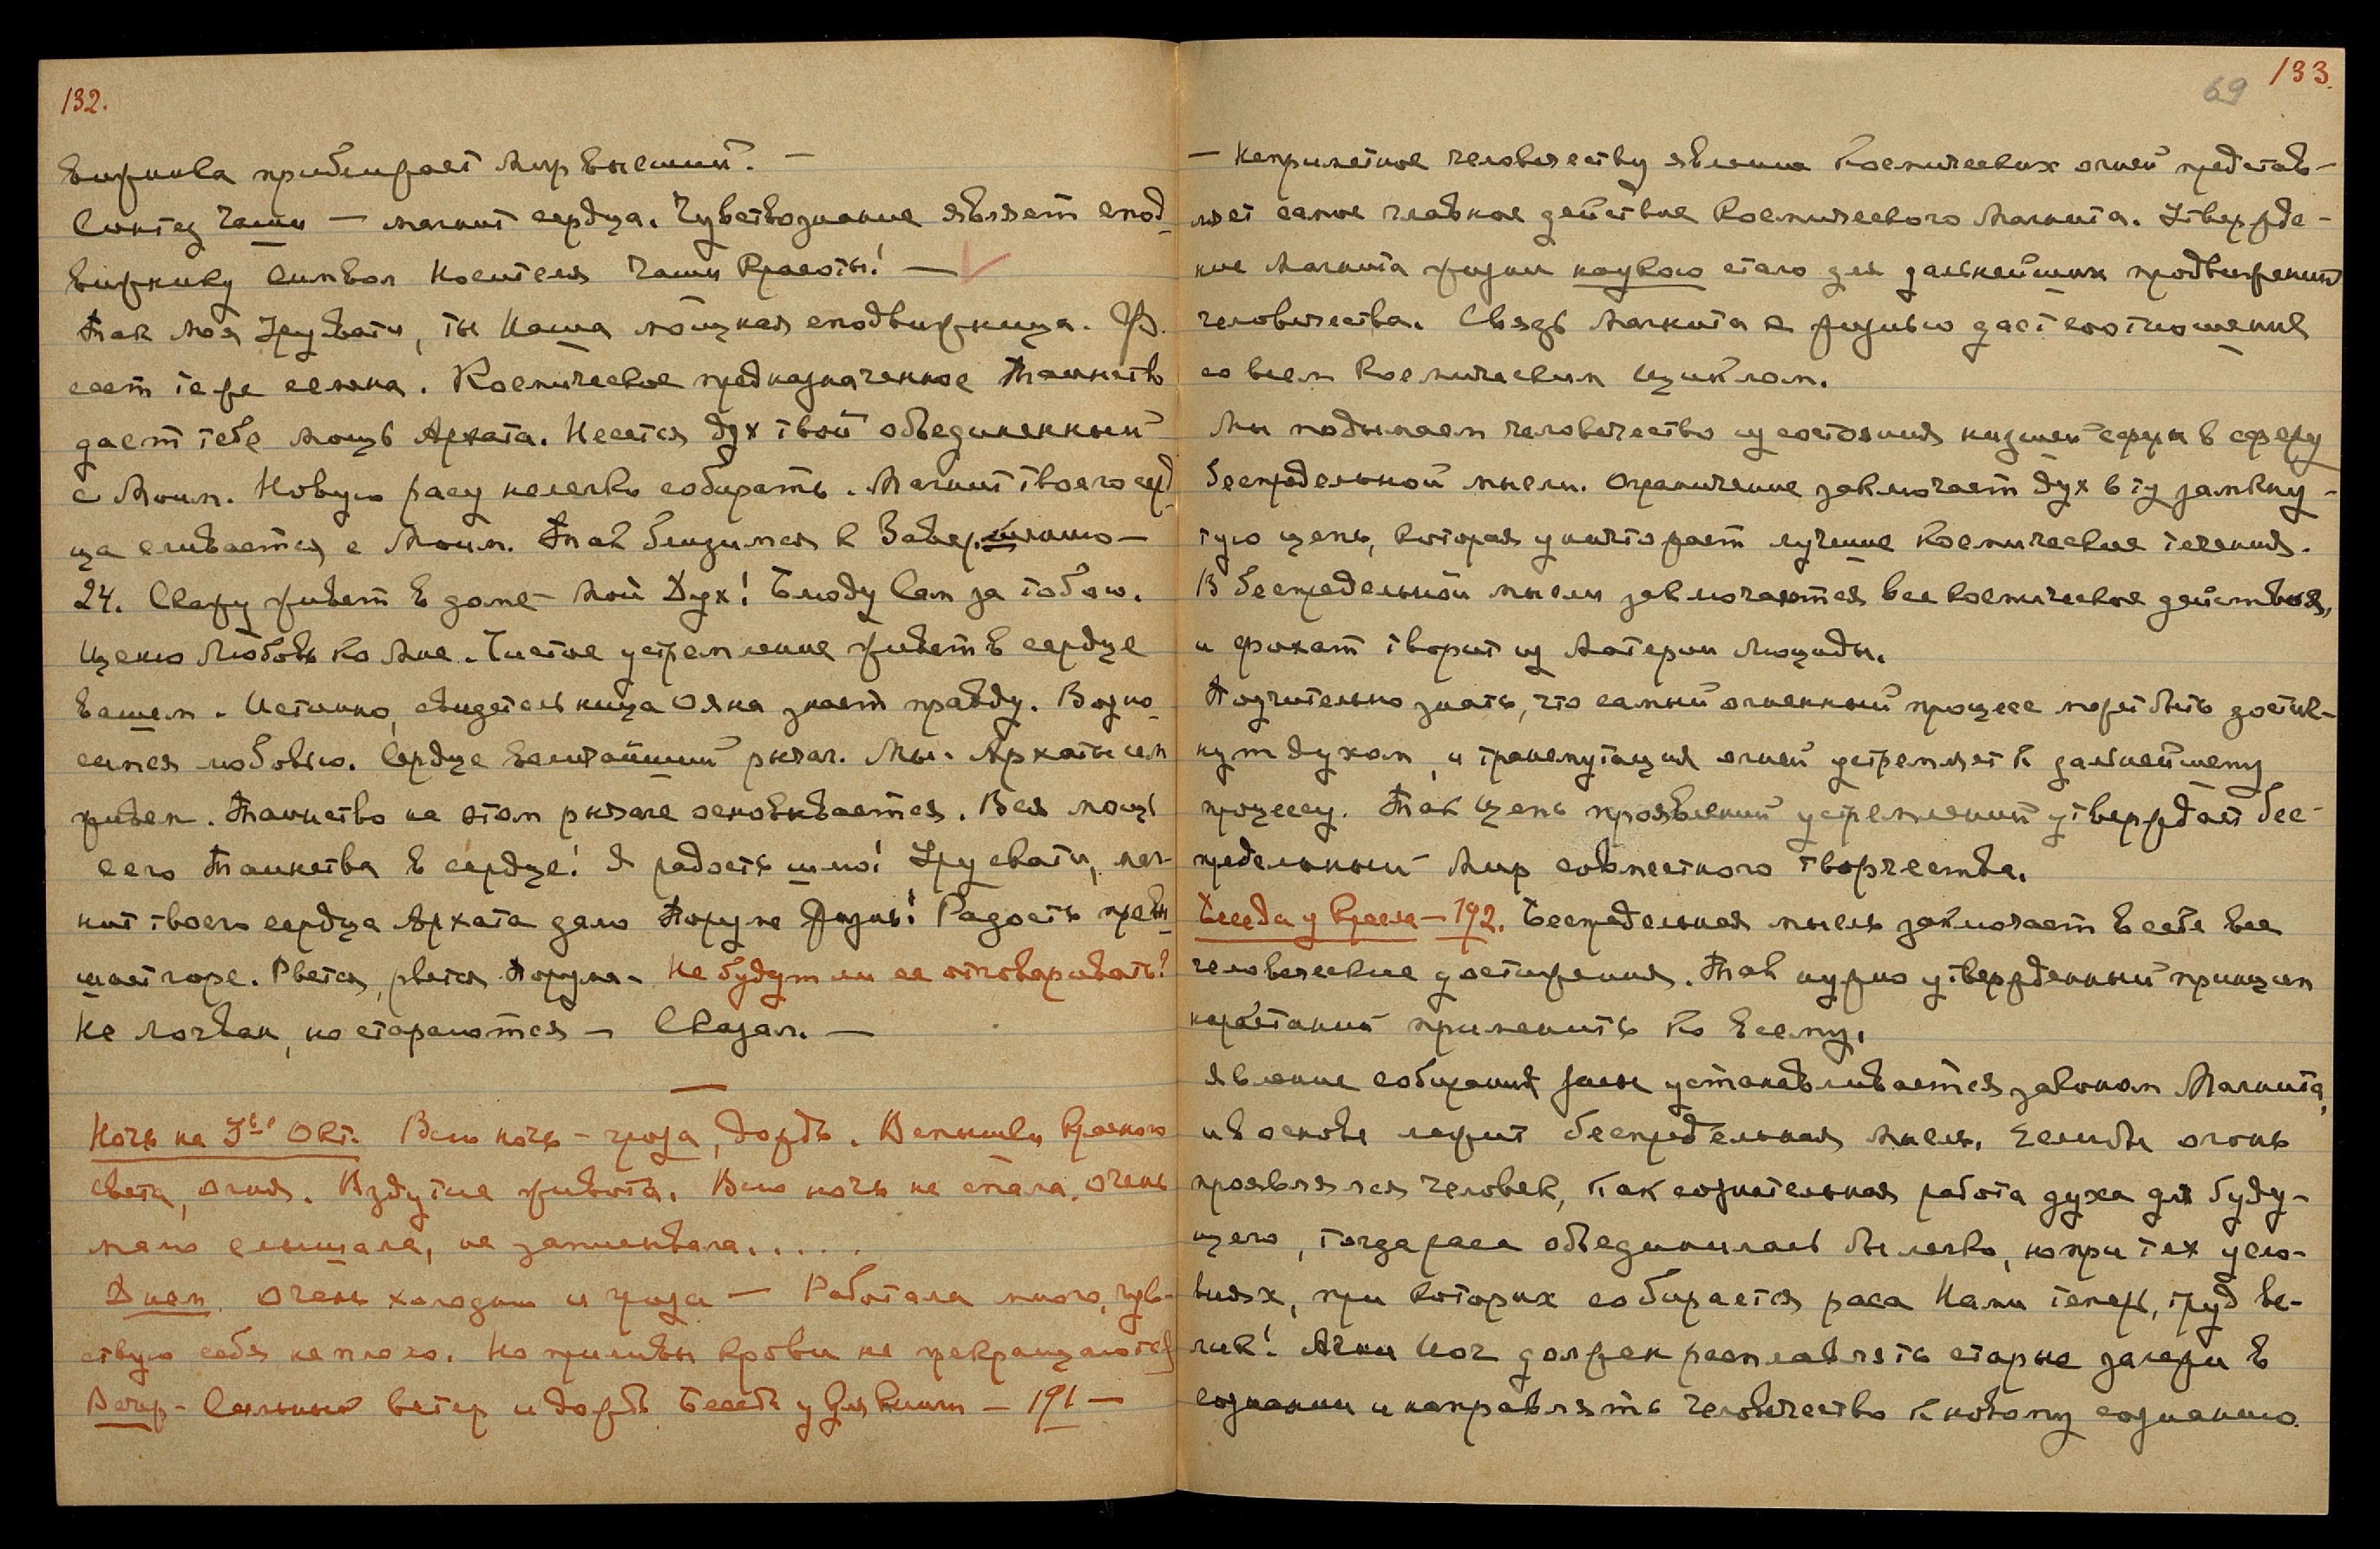 132.
вижника приближает Мир Высший. —
Синтез Чаши — магнит сердца. Чувствознание являет спод-
вижнику символ Носителя Чаши Красоты! —
Так Моя Урусвати, ты Наша мощная сподвижница.
Космическое предназначенное Таинство
дает тебе мощь Архата. Несется дух твой объединенный
с Моим. Новую расу нелегко собирать. Магнит твоего серд-
ца сливается с Моим. Так близимся к Завершению —
24. Скажу живет в доме Мой Дух! Блюду Сам за тобою.
Ценю Любовь ко Мне. Чистое устремление живет в сердце
вашем. Истинно, свидетельница Ояна знает правду. Возно-
симся любовью. Сердце величайший рычаг. Мы Архаты им
живем. Таинство на этом рычаге основывается. Вся мощь
сего Таинства в сердце! Я радость шлю! Урусвати, маг-
нит твоего сердца Архата дало Поруме Жизнь! Радость превы-
шает горе. Рвется, рвется Порума. Не будут ли ее отговаривать?
Не Логван, но стараются — Сказал. —
Ночь на 3ье Окт. Всю ночь — гроза, дождь. Вспышки красного
света, огня. Вздутие живота. Всю ночь не спала, очень
мало слышала, не записывала......
Днем. Очень холодно и гроза — Работала много, чув-
ствую себя неплохо. Но приливы крови не прекращаются
Вечер — Сильный ветер и дождь Беседа — 191 —
69 133.
— Неприметное человечеству явление Космических огней представ-
ляет самое главное действие Космического Магнита. Утвержде-
ние Магнита жизни наукою стало для дальнейших продвижений
человечества. Связь Магнита с жизнью даст соотношения
со всем Космическим циклом.
Мы подымаем человечество из состояния низшей сферы в сферу
беспредельной мысли. Ограничение заключает дух в ту замкну-
тую цепь, которая уничтожает лучшие Космические течения.
В беспредельной мысли заключаются все космические действия,
и фохат творит из Материи Люциды.
Поучительно знать, что самый огненный процесс может быть достиг-
нут духом, и трансмутация огней устремляет к дальнейшему
процессу. Так цепь проявлений устремлений утверждает бес-
предельный Мир совместного творчества.
Беседа у Кресла — 192. Беспредельная мысль заключает в себе все
человеческие достижения. Так нужно утвержденный принцип
нарастаний применить ко всему.
Явление собирания расы устанавливается законом Магнита,
и в основе лежит беспредельная мысль. Если бы огонь
проявлялся человек, как сознательная работа духа для буду-
щего, тогда раса объединилась бы легко, но при тех усло-
виях, при которых собирается раса Нами теперь, труд ве-
лик! Агни Йог должен расплавлять старые залежи в
сознании и направлять человечество к новому сознанию.